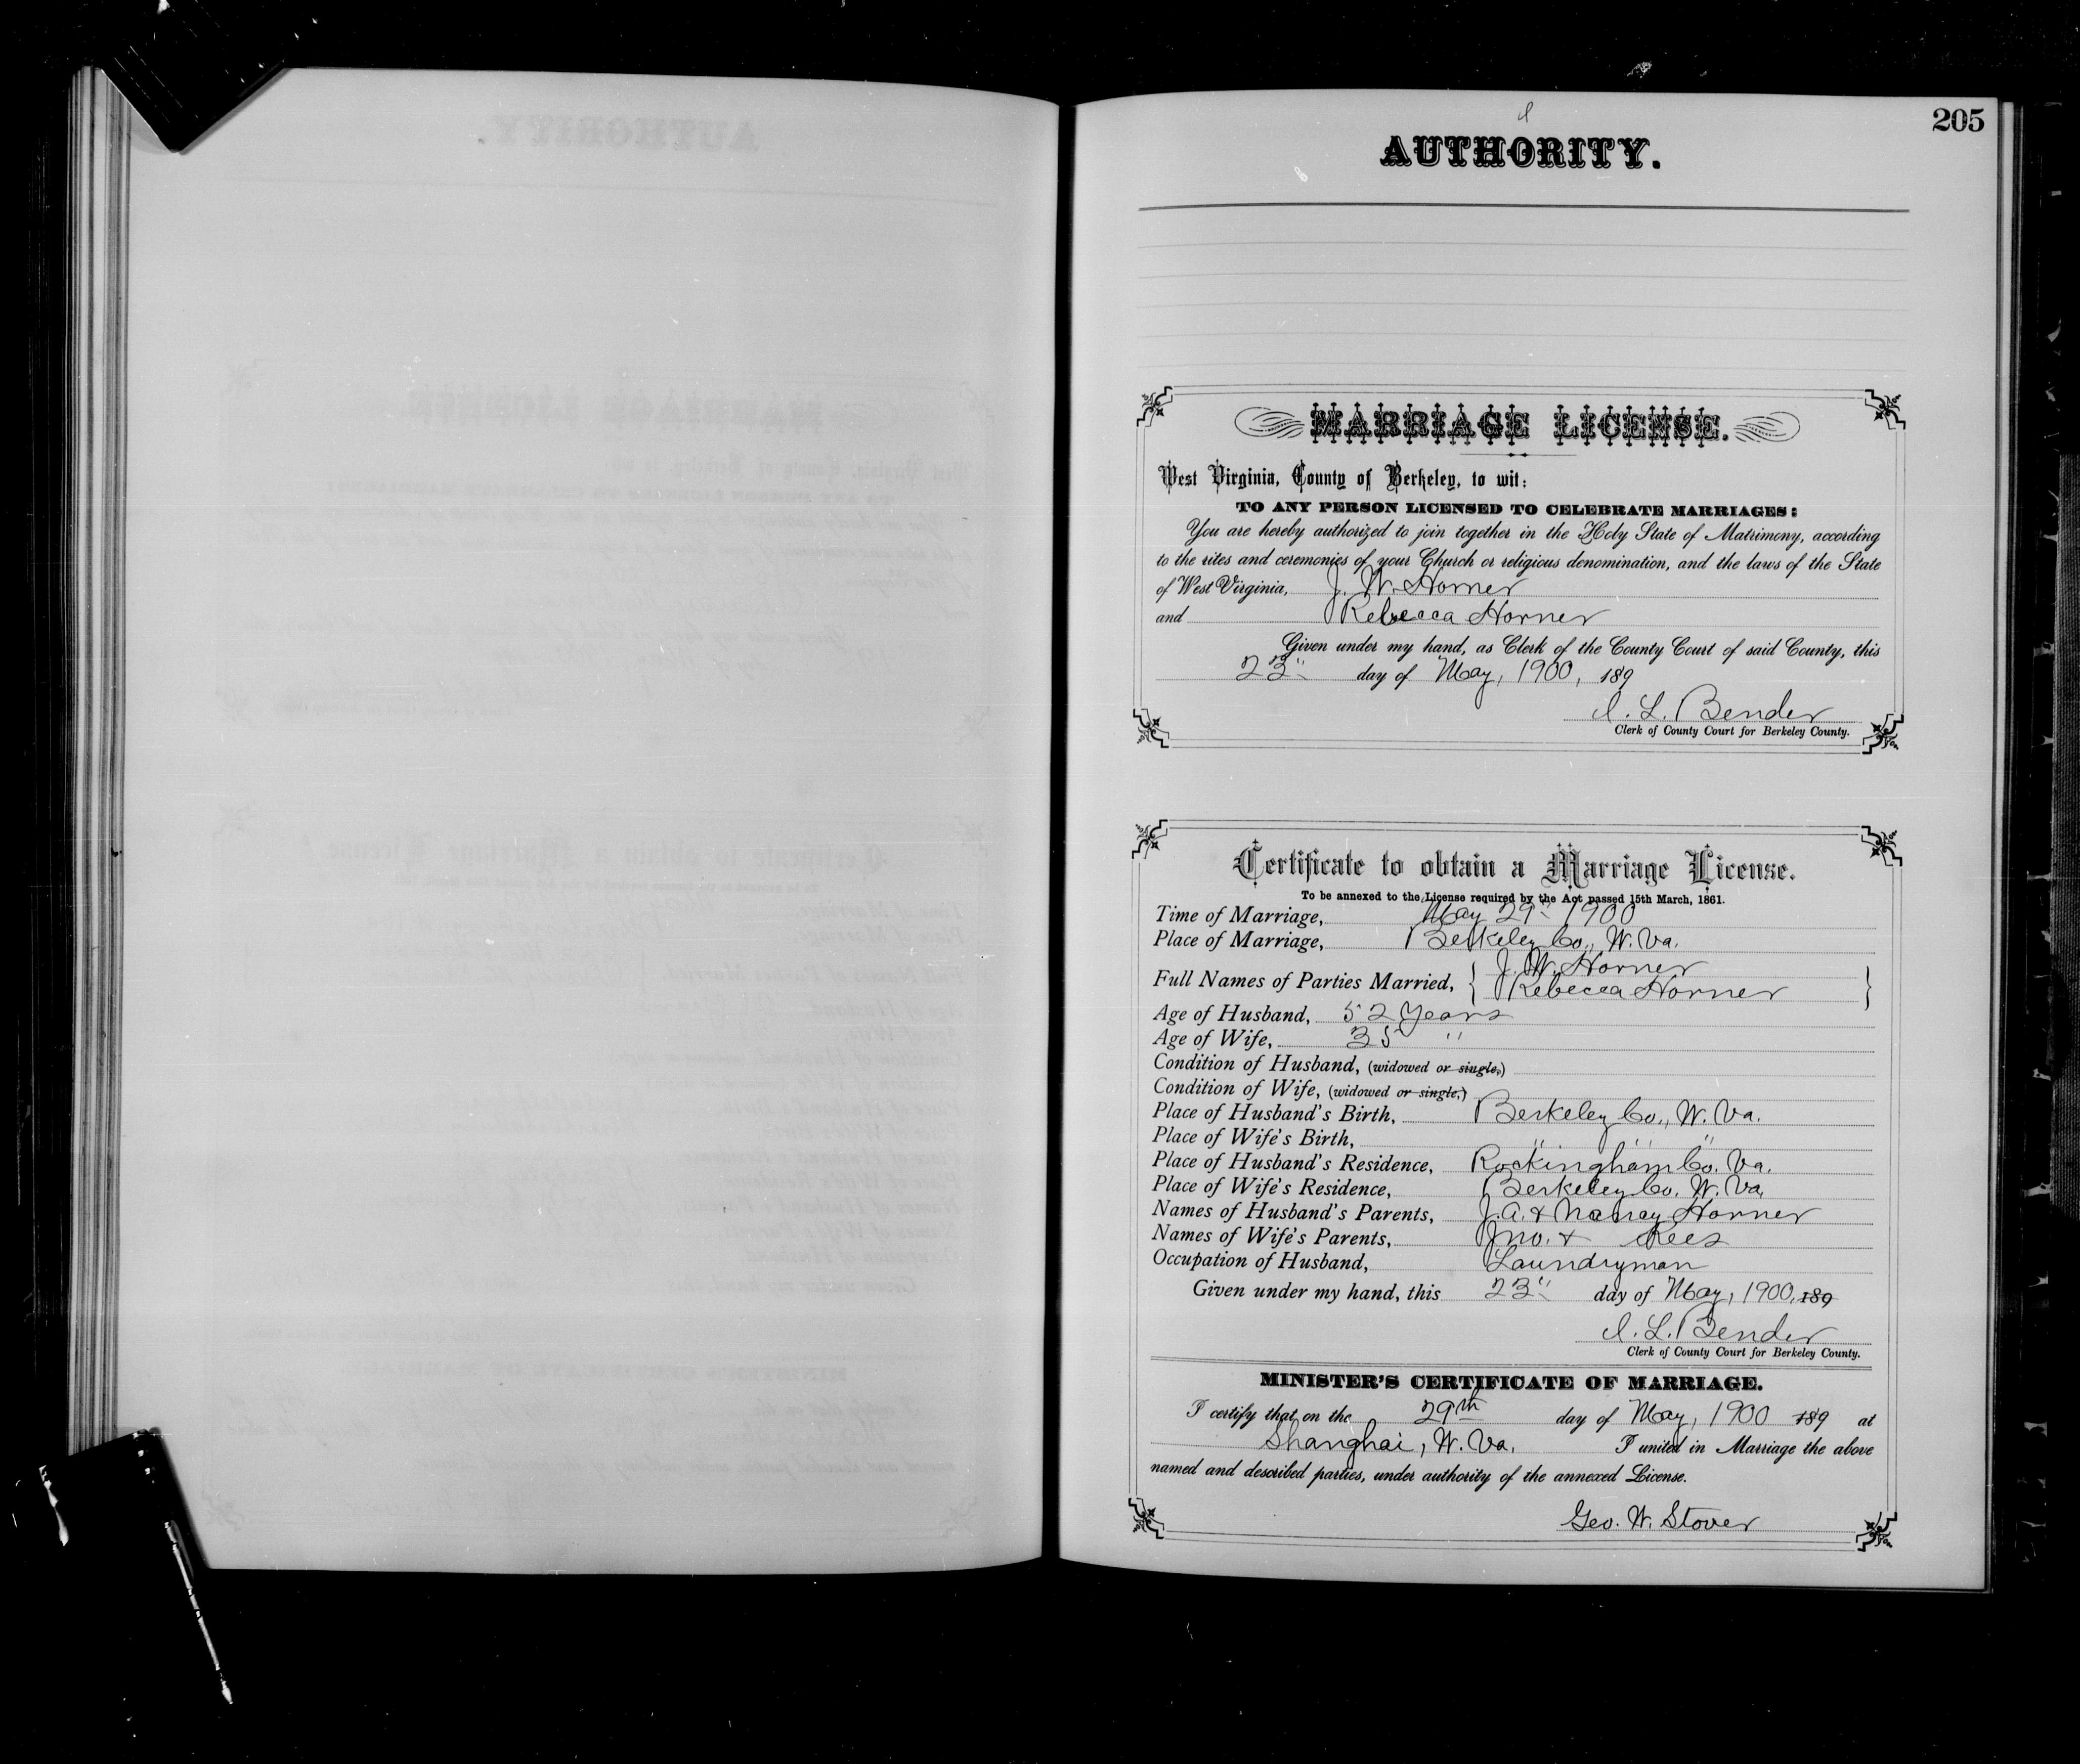 205
AUTHORITY.
MARRIAGE LICENSE.
West Virginia, County of Berkeley, to wit:
TO ANY PERSON LICENSED TO CELEBRATE MARRIAGES:
You are hereby authorized to join together in the Holy State of Matrimony, according
to the rites and ceremonies of your Church or religious denomination, and the laws of the State
of West Virginia, J. W. Horner
and Rebecca Horner
Given under my hand, as Clerk of the County Court of said County, this
23" day of May, 1900, 189
I. L. Bender
Clerk of County Court for Berkeley County.
Certificate to obtain a Marriage License.
To be annexed to the License required by the Act passed 15th March, 1861.
Time of Marriage, May 29" 1900
Place of Marriage, Berkeley Co., W. Va.
Full Names of Parties Married, { J. W. Horner
Rebecca Horner }
Age of Husband, 52 Years
Age of Wife, 35 "
Condition of Husband, (widowed or single,)
Condition of Wife, (widowed or single,)
Place of Husband's Birth, Berkeley Co., W. Va.
Place of Wife's Birth, " " "
Place of Husband's Residence, Rockingham Co. Va.
Place of Wife's Residence, Berkeley Co. W. Va.
Names of Husband's Parents, J. A. & Nancy Horner
Names of Wife's Parents, Jno. & Rees
Occupation of Husband, Laundryman
Given under my hand, this 23" day of May, 1900, 189
I. L. Bender
Clerk of County Court for Berkeley County.
MINISTER'S CERTIFICATE OF MARRIAGE.
I certify that on the 29th day of May, 1900 189 at
Shanghai, W. Va. I united in Marriage the above
named and described parties, under authority of the annexed License.
Geo. W. Stover